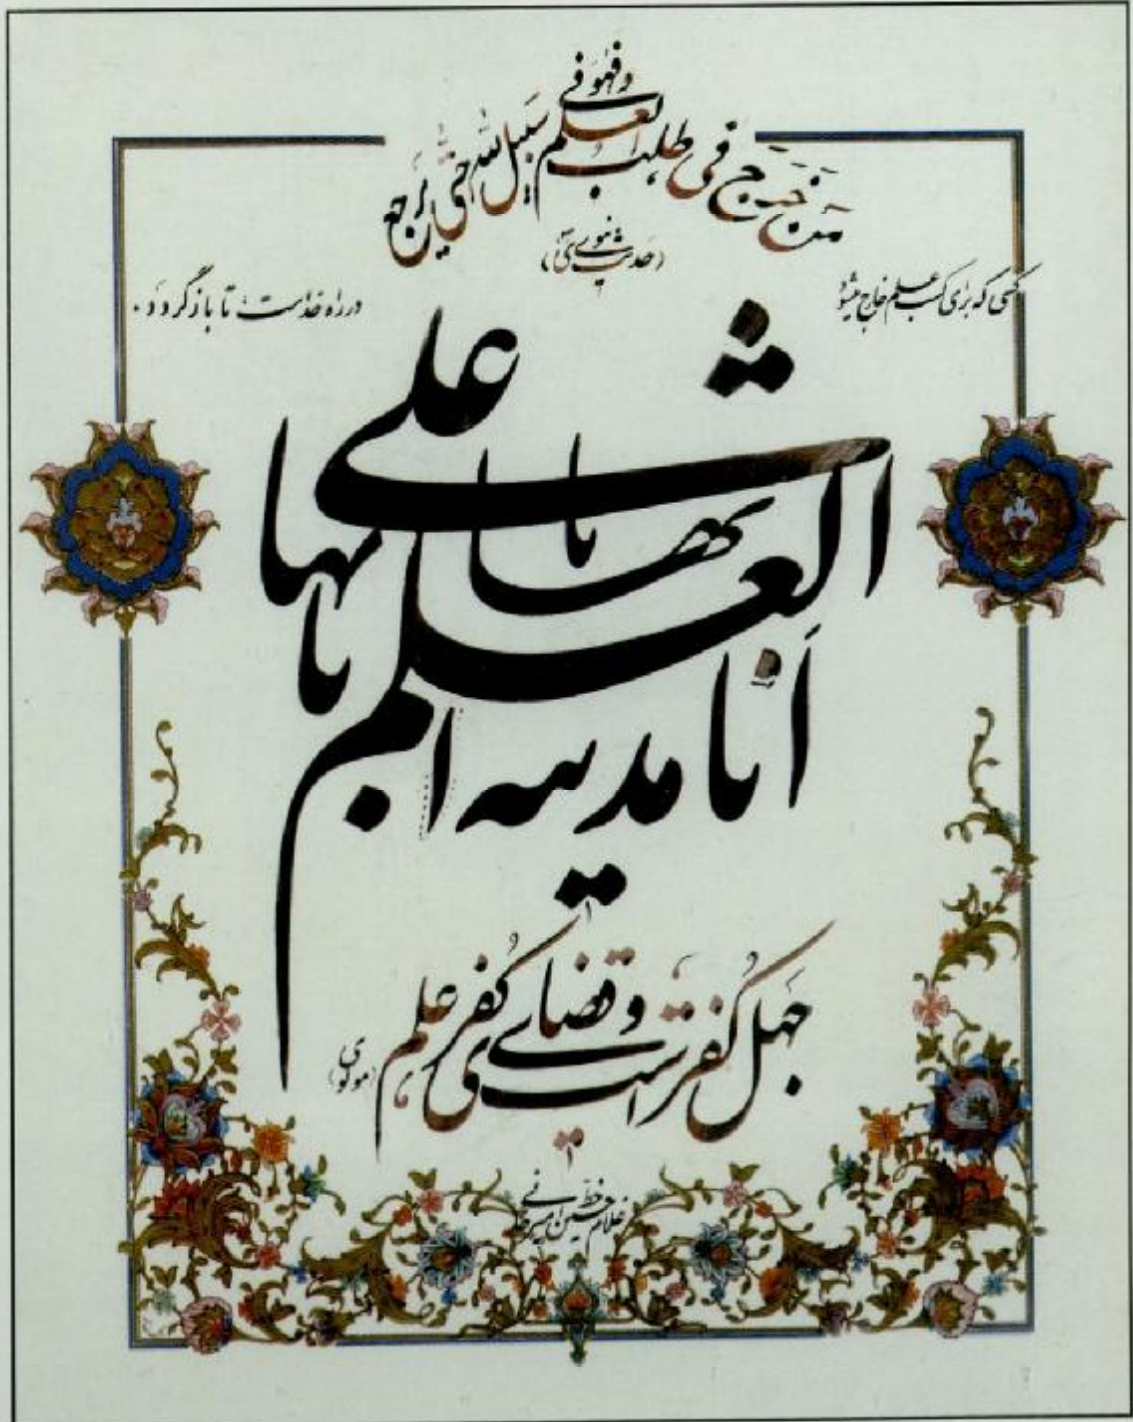 مَن خَرَجَ فی طلب العلم فهو فی سبیل الله حتی یرجع
(حدیث نبوی ص)
کسی که برای کسب علم خارج میشود
در راه خداست تا باز گردد.
انا مدینة العلم
علی بابها
جَهل کُفرست و قضای کُفر علم
(مولوی)
خط
غلامحسین امیرخانی